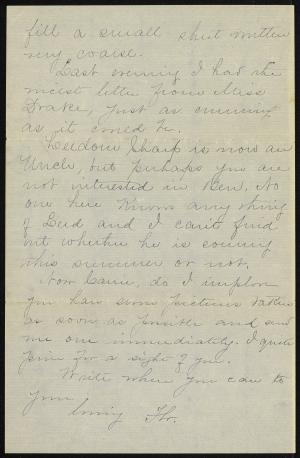 fill a small sheet written
very coarse.
Last evening I had the
nicest letter from Miss
Drake, just as cunning
as it could be.
Sharp is now an
Uncle, but perhaps you are
not interested in Ben. No
one here knows anything
of and I can't find
out whether he is coming
this summer or not.
Now do I implore
you have some pictures taken
as soon as possible and send
me one immediately. I quite
pine for a sight of you.
Write when you can to
your
loving Flo.